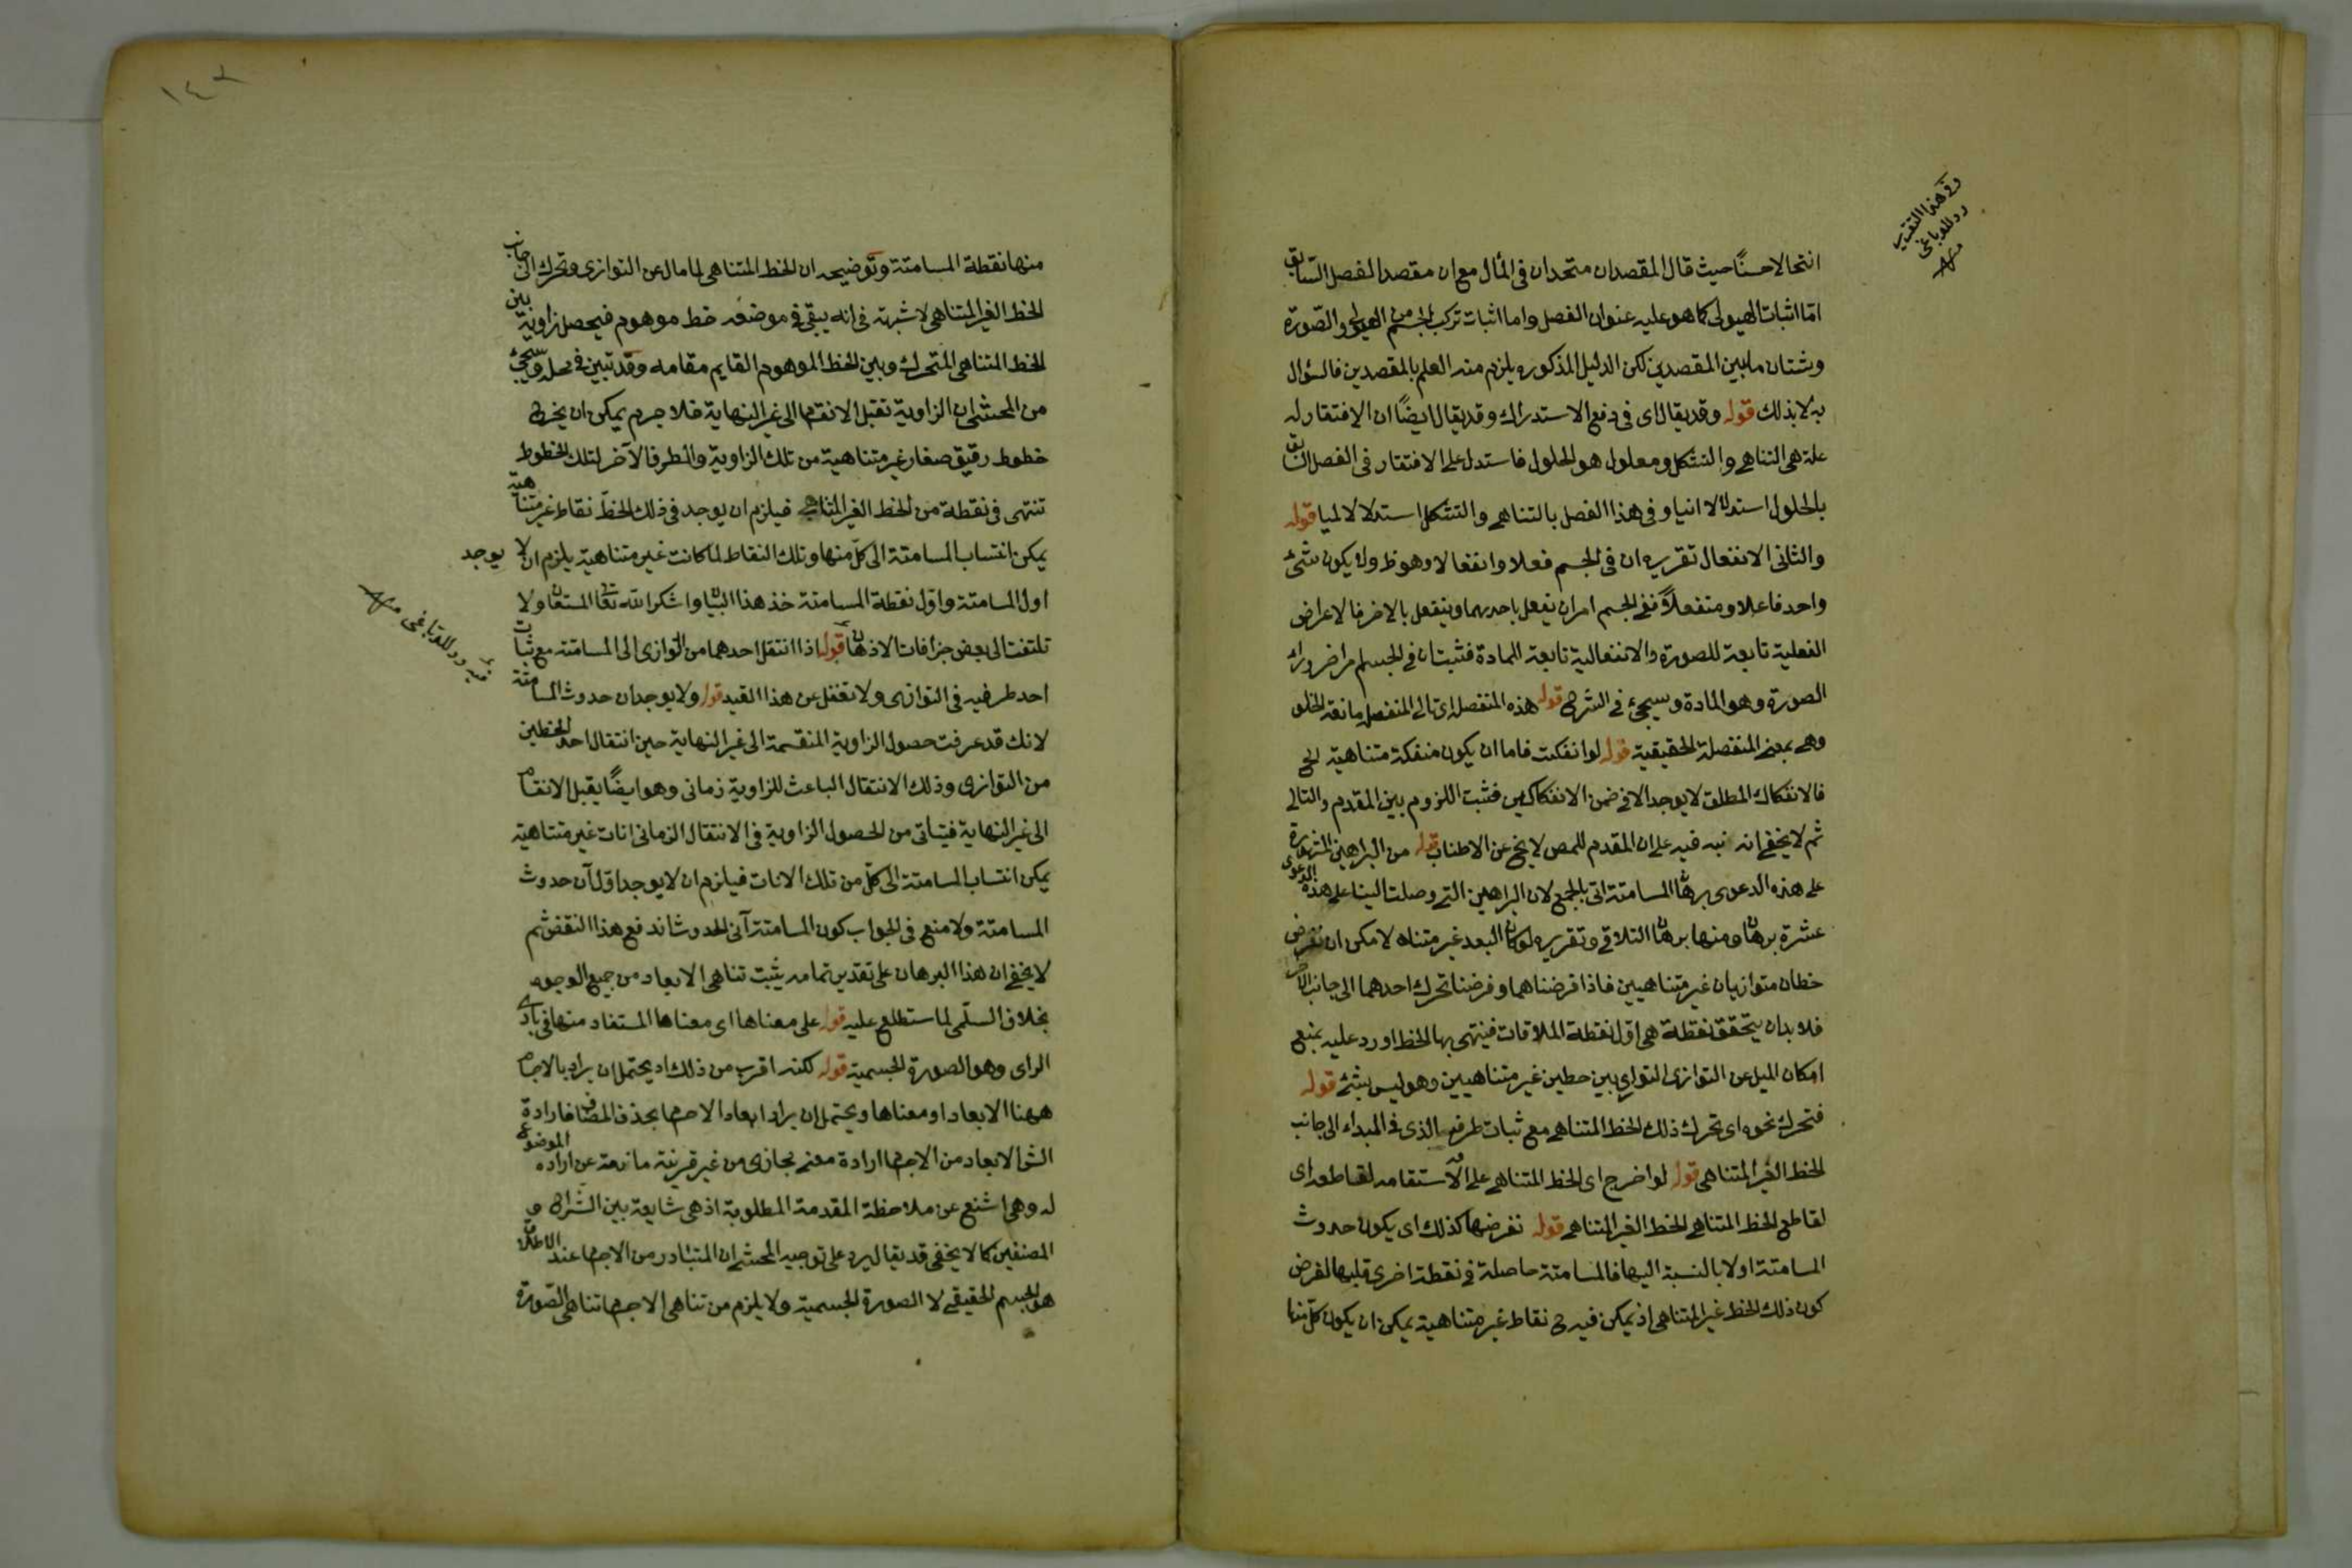 انتحالا حسنًا حيث قال المقصدان متحدان فى المأل مع ان مقصد الفصل السّابق
امّا اثبات الهيولى كما هو عليه عنوان الفصل واما اثبات تركب الجسم من الهيولى والصّورة
وشتان ما بين المقصدين لكن الدليل المذكور يلزم منه العلم بالمقصدين فالسؤال
به لا بذلك قوله وقد يقال اى فى دفع الاستدراك وقد يقال ايضًا ان الافتقار له
علة هى التناهى والتشكل ومعلول هو الحلول فاستدل على الافتقار فى الفصل السابق
بالحلول استدلالا انيا وفى هذا الفصل بالتناهى والتشكل استدلالا لميا قوله
والثانى الانفعال تقريره ان فى الجسم فعلا وانفعالا وهو ظ ولا يكون شئ
واحد فاعلا ومنفعلاً ففى الجسم امران يفعل باحدهما وينفعل بالاخر فالاعراض
الفعلية تابعة للصورة والانفعالية تابعة المادة فثبت ان فى الجسم امرا ضر وراء
الصورة وهو المادة وسيجئ فى الشرح قوله هذه المنفصلة اى تالى المنفصل مانعة الخلو
وهى بمعنى المنفصلة الحقيقية قوله لو انفكت فاما ان يكون منفكة متناهية الخ
فالانفكاك المطلق لا يوجد الا فى ضمن الانفكاكين فثبت اللزوم بين المقدم والتالى
ثم لا يخفى انه نبه فيه على ان المقدم للمص لا يخ عن الاطناب قوله من البراهين المشهورة
على هذه الدعوى برهان المسامتة اتى بالجمع لان البراهين التى وصلت الينا على هذه الدعوى
عشرة برهان ومنها برهان التلاقى وتقريره لو كان البعد غير متناه لامكن ان نفرض
خطان متوازيان غير متناهيين فاذا فرضناهما وفرضنا تحرك احدهما الى جانب الاخر
فلا بد ان يتحقق نقطة هى اول نقطة الملاقات فينتهى بها الخط اورد عليه بمنع
امكان الميل عن التوازى التوازى بين خطين غير متناهيين وهو ليس بشئ قوله
فتحرك نحوه اى تحرك ذلك الخط المتناهى مع ثبات طرفه الذى فى المبداء الى جانب
الخط الغير المتناهى قوله لو اخرج اى الخط المتناهى على الاستقامه لقاطعه اى
لقاطع الخط المتناهى الخط الغير المتناهى قوله نفرضها كذلك اى يكون حدوث
المسامتة اولا بالنسبة اليها فالمسامتة حاصلة فى نقطة اخرى قبلها لفرض
كون ذلك الخط غير المتناهى اذ يمكن فيه ح نقاط غير متناهية يمكن ان يكون كل منها
وفى هذا التقريب
رد للقرباغى
منه
١٤٢
منها نقطة المسامتة وتوضيحه ان الخط المتناهى لما مال عن التوازى وتحرك الى جانب
الخط الغير المتناهى لا شبهة فى انه يبقى فى موضعه خط موهوم فيحصل زاوية بين
الخط المتناهى المتحرك وبين الخط الموهوم القايم مقامه وقد تبين فى محله وسيجئ
من المحشى ان الزاوية تقبل الانقسام الى غير النهاية فلا جرم يمكن ان يخرج
خطوط رقيق صغار غير متناهية من تلك الزاوية والطرف الآخر لتلك الخطوط
تنتهى فى نقطة من الخط الغير المتناهى فيلزم ان يوجد فى ذلك الخط نقاط غير متناهية
يمكن انتساب المسامتة الى كل منها وتلك النقاط لما كانت غير متناهية يلزم ان لا يوجد
اول المسامتة واوّل نقطة المسامتة خذ هذا البيان واشكر الله تعالى المستعان ولا
تلتفت الى بعض جزافات الاذهان قوله اذا انتقل احدهما من التوازى الى المسامتة مع ثبات
احد طرفيه فى التوازى ولا تغفل عن هذا القيد قوله ولا يوجد ان حدوث المسامتة
لانك قد عرفت حصول الزاوية المنقسمة الى غير النهاية حين انتقال احد الخطين
من التوازى وذلك الانتقال الباعث للزاوية زمانى وهو ايضًا يقبل الانقسام
الى غير النهاية فيتأتى من الحصول الزاوية فى الانتقال الزمانى انات غير متناهية
يمكن انتساب المسامتة الى كلّ من تلك الانات فيلزم ان لا يوجد اوّل آن حدوث
المسامتة ولا منع فى الجواب كون المسامتة آنى الحدوث اندفع هذا النقض ثم
لا يخفى ان هذا البرهان على تقدير تمامه يثبت تناهى الابعاد من جميع الوجوه
بخلاف السلّمى لما ستطلع عليه قوله على معناها اى معناها المستفاد منها فى بادى
الراى وهو الصورة الجسمية قوله لكنه اقرب من ذلك اه يحتمل ان يراد بالاجسام
ههنا الابعاد او معناها ويحتمل ان يراد ابعاد الاجسام بحذف المضاف فارادة
الابعاد من الاجسام ارادة معنى مجازى من غير قرينة مانعة عن ارادة الموضوع
له وهى اشنع عن ملاحظة المقدمة المطلوبة اذ هى شايعة بين الشراح و
المصنفين كما لا يخفى قد يقال يرد على توجيه المحشى ان المتبادر من الاجسام عند الاطلاق
هو الجسم الحقيقى لا الصورة الجسمية ولا يلزم من تناهى الاجسام تناهى الصورة
فيه رد للقرباغى منه